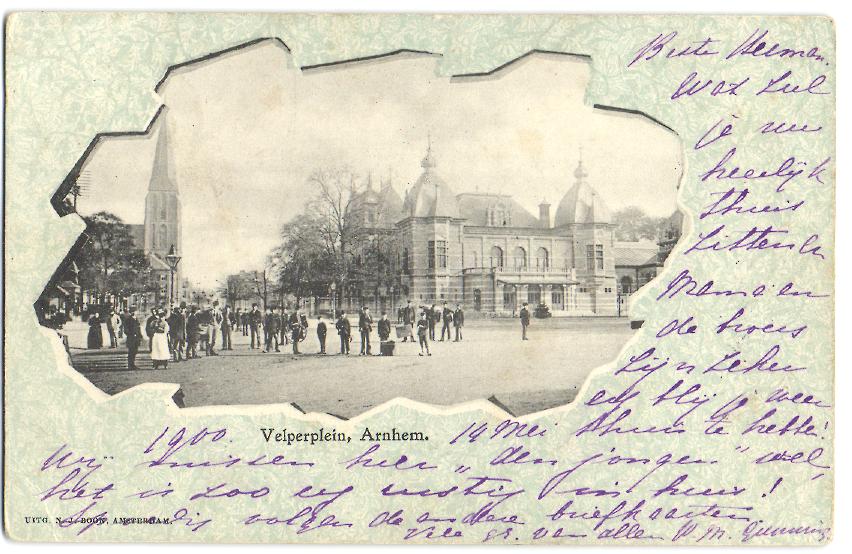 Beste Herman.
Wat zul
je nu
heerlijk
thuis
zitten en
Mama en
de broers
zijn zeker
erg blij je weer
thuis te hebbe!
1900. Velperplein, Arnhem. 14 Mei
Wij missen hier „den jongen" wel,
het is zoo erg rustig in huis!
Spoedig volgen de andere briefkaarten
UITG. N. J. BOON, AMSTERDAM.
Vele gr. van allen P. M. Gunning